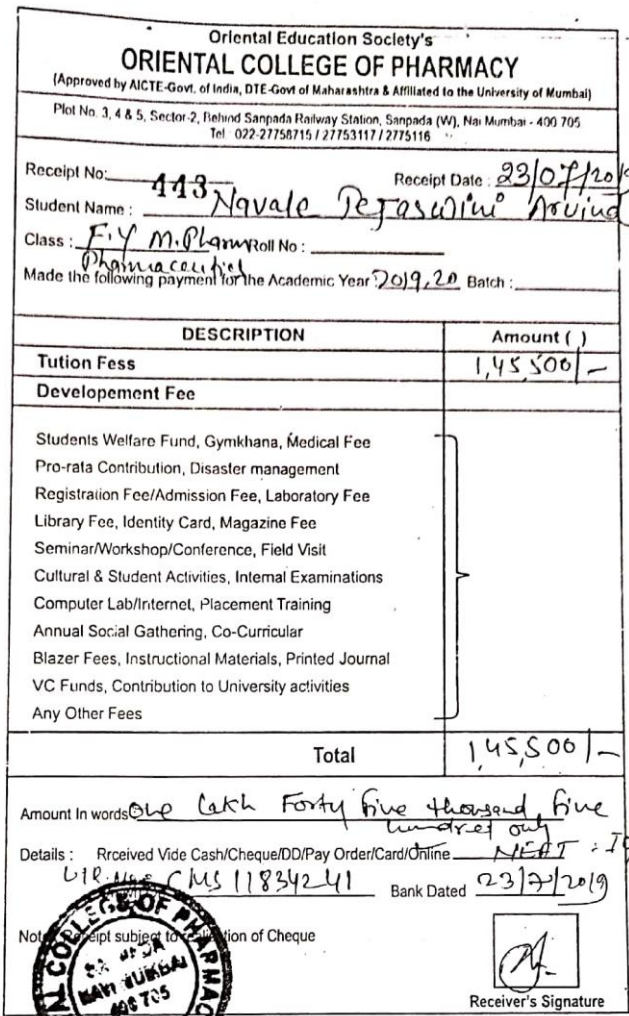 Oriental Education Society's
ORIENTAL COLLEGE OF PHARMACY
(Approved by AICTE-Govt. of India, DTE-Govt of Maharashtra & Affiliated to the University of Mumbai)
Plot No. 3, 4 & 5, Sector-2, Behind Sanpada Railway Station, Sanpada (W), Nai Mumbai - 400 705
Tel : 022-27758715 / 27753117 / 2775116
Receipt No: 443 Receipt Date : 23/07/2019
Student Name : Navale Tejaswini Arvind
Class : F.Y M.Pharm Roll No :
Pharmaceutics
Made the following payment for the Academic Year : 2019,20 Batch :
DESCRIPTION Amount ( )
Tution Fess 1,45,500/-
Developement Fee
Students Welfare Fund, Gymkhana, Medical Fee
Pro-rata Contribution, Disaster management
Registration Fee/Admission Fee, Laboratory Fee
Library Fee, Identity Card, Magazine Fee
Seminar/Workshop/Conference, Field Visit
Cultural & Student Activities, Internal Examinations
Computer Lab/Internet, Placement Training
Annual Social Gathering, Co-Curricular
Blazer Fees, Instructional Materials, Printed Journal
VC Funds, Contribution to University activities
Any Other Fees
Total 1,45,500/-
Amount In words One Lakh Forty five thousand, five
hundred only
Details : Rrceived Vide Cash/Cheque/DD/Pay Order/Card/Online NEFT :
CMS 11834241 Bank Dated 23/7/2019
Note : Receipt subject to realisation of Cheque
COLLEGE OF PHARMAC
NAVI MUMBAI
400 705
Receiver's Signature